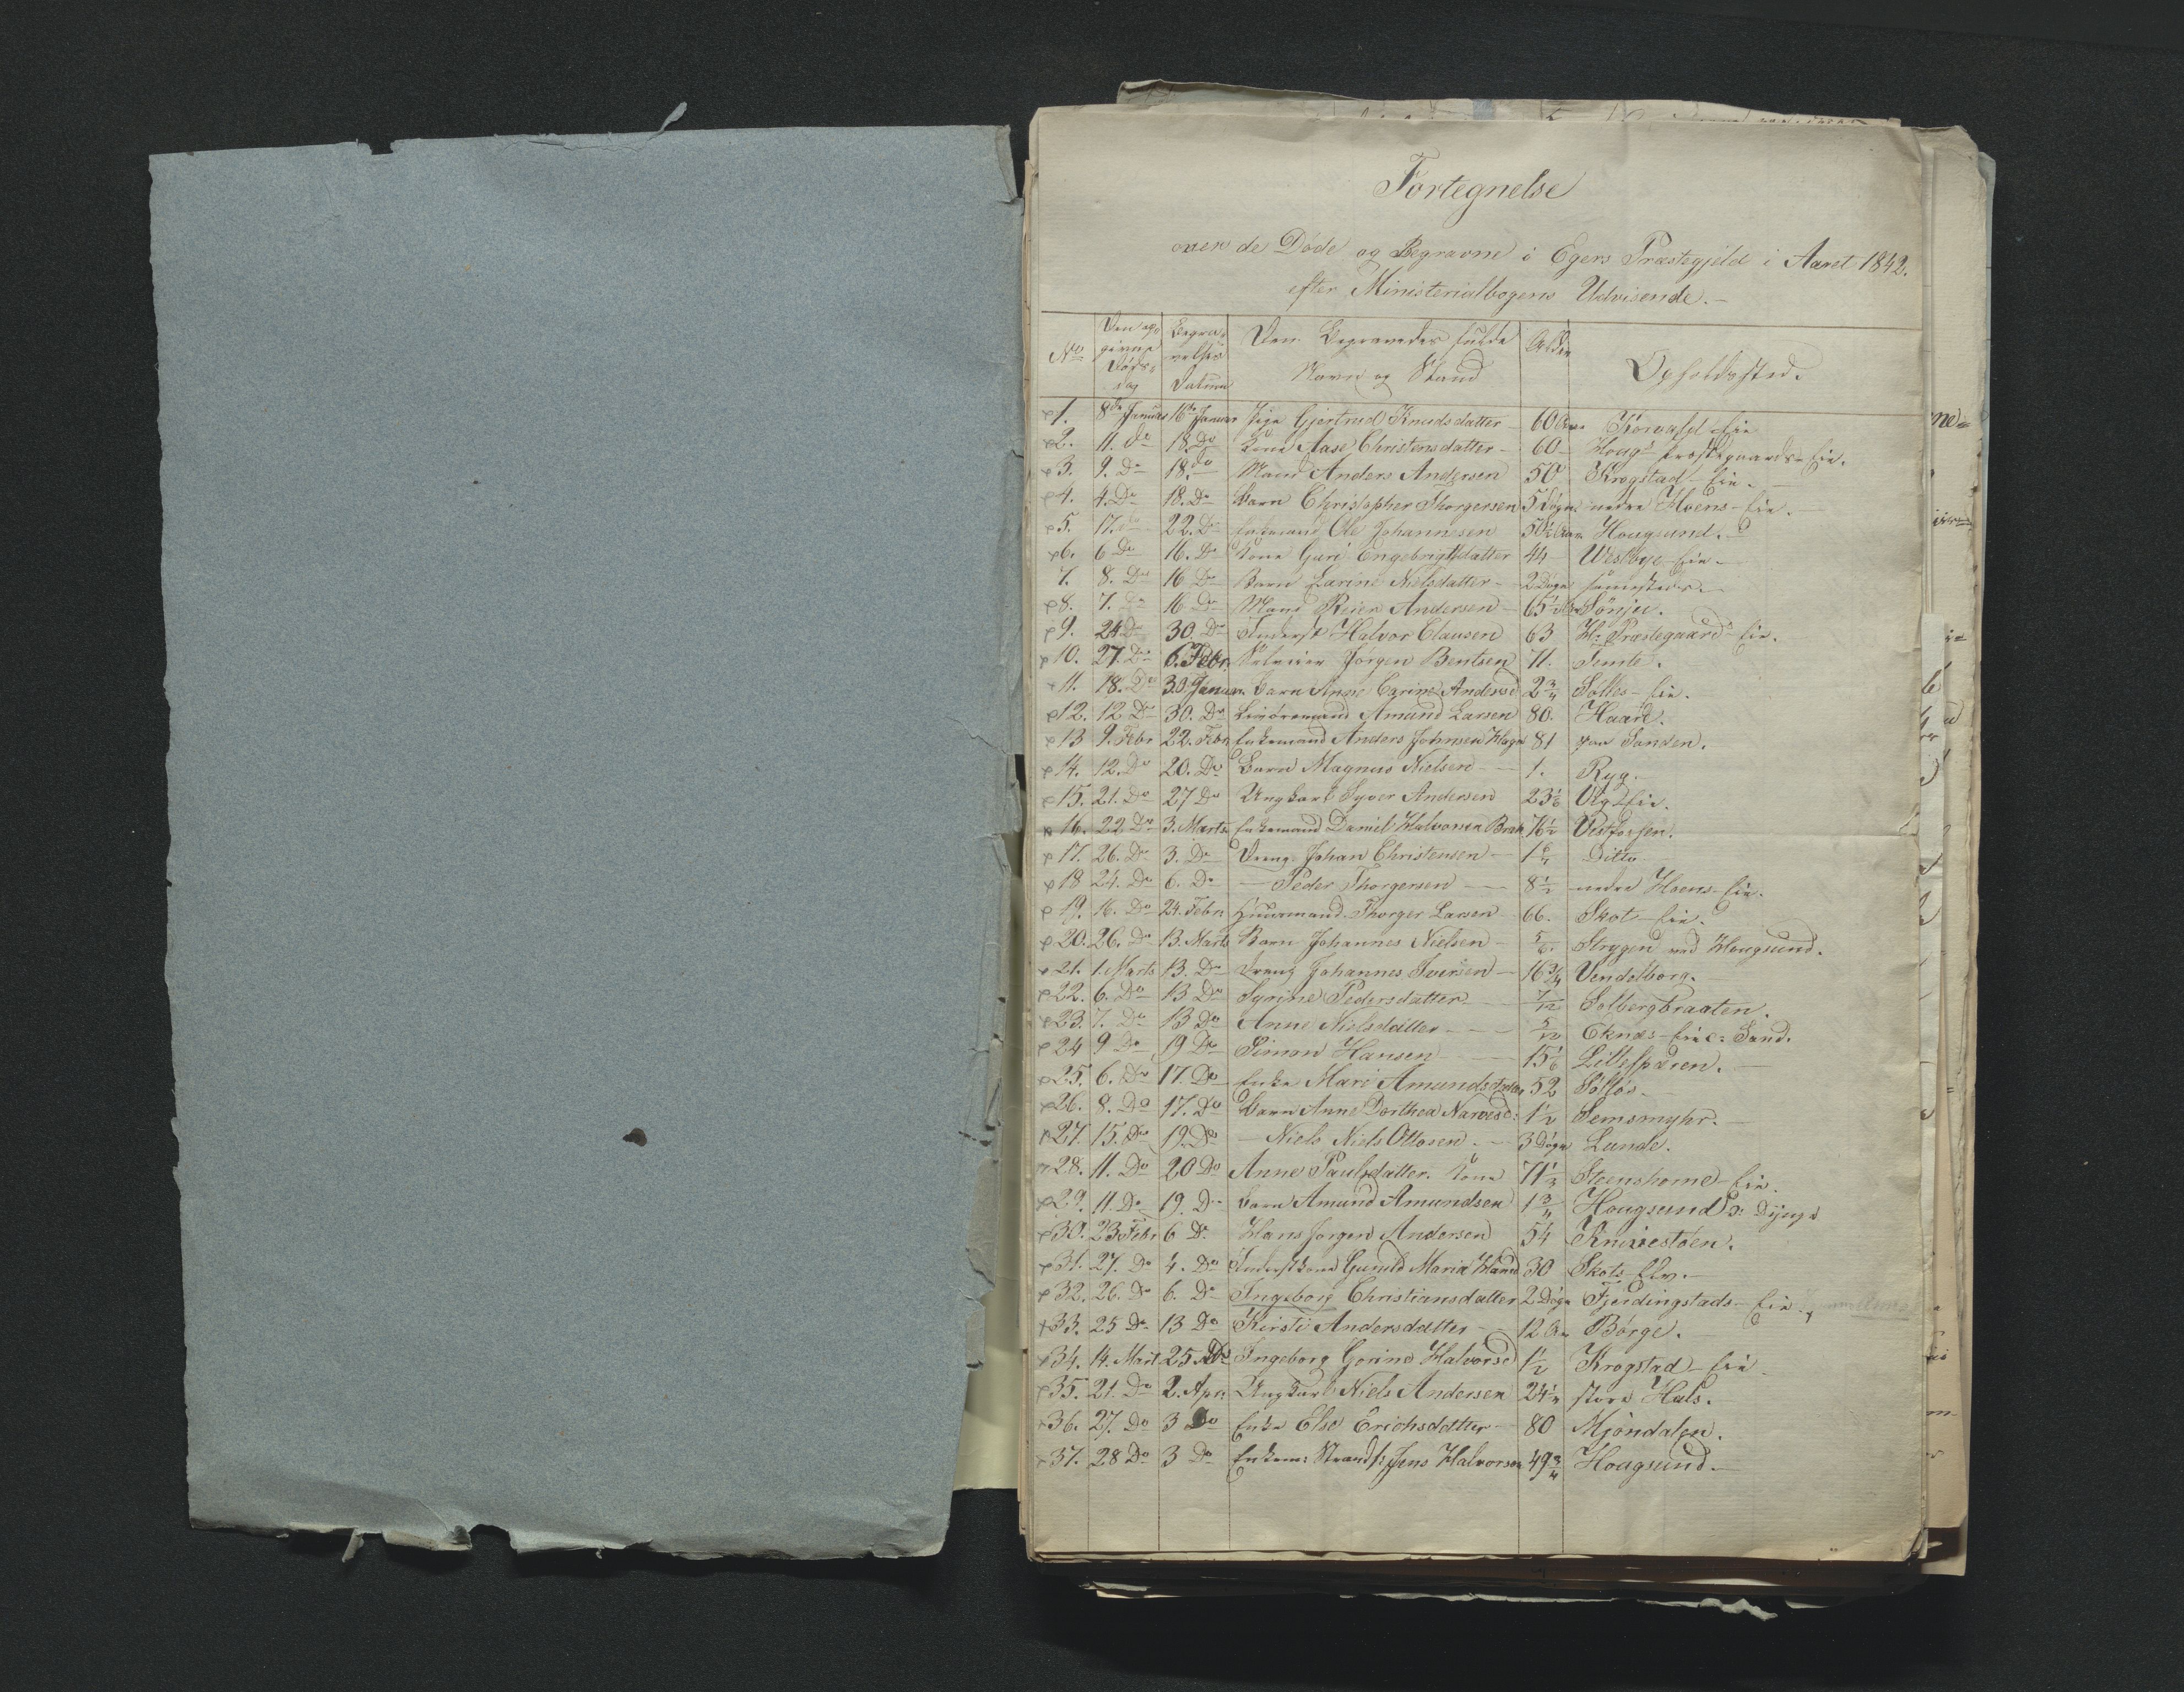 Fortegnelse
over de Døde og Begravne i Egers Præstegjeld i Aaret 1842.
efter Ministerialbogens Udvisende.-
No Den opgivne Døds-dag Begravelses Datum Den Begravedes fulde Navn og Stand Alder Opholdssted.
1. 8de Januar 16de Januar Pige Gjertrud Knudsdatter 60 Aar Eie
2. 11. Do 18. Do Kone Aase Christensdatter - 60 - Houg Præstegaards-Eie.
3. 9. Do 18. Do Mand Anders Andersen 50 Krogstad-Eie.
4. 4. Do 18. Do Barn Christopher Thorgersen 5 Døgn nedre Hoens-Eie.
5. 17. Do 22. Do Enkemand Ole Johannesen 50½ Aar Hougsund.
6. 6 Do 16. Do Kone Guri Engebrigtsdatter 44 Westbye-Eie
7. 8. Do 16 Do Barn Karine Nielsdatter - 2 Døgn sammesteds.
8. 7. Do 16 Do Mand Reier Andersen - 65½ Aar Sønju.
9. 24 Do 30. Do Inderst Halvor Clausen 63 H: Præstegaards Eie.
10. 27. Do 6. Febr. Jørgen Bentsen 71. Semte.
11. 18. Do 30 Januar. Barn Anne Carine Andersd 2¾ Solles-Eie.
12. 12 Do 30. Do Livøremand Amund Larsen 80. Haare.
13 9. Febr 22. Febr. Enkemand Anders Johnsen Hagen 81 paa Sanden.
14. 12. Do 20. Do Barn Magnus Nielsen - 1. Ryg.
15. 21. Do 27 Do Ungkarl Syver Andersen 23⅙ Eie.
16. 22 Do 3. Marts Enkemand Daniel Halvorsen 76½ Vestfossen.
17. 26. Do 3. Do Dreng Johan Christensen - 1 Ditto
18 24. Do 6. Do - Peder Thorgersen - 8½ nedre Hoens-Eie.
19. 16. Do 24. Febr: Huusmand Thorger Larsen 66. Skot-Eie.
20. 26. Do 13. Marts Barn Johannes Nielsen - 5/6 Strygen ved Hougsund.
21. 1. Marts 13. Do Dreng Johannes Iversen - 16¾ Vendelborg.
22. 6. Do 13 Do Syrine Pedersdatter - 7/12 Solbergbraaten.
23. 7. Do 13 Do Anne Nielsdatter - 5/12 Eknes-Eie: Sand.
24 9 Do 19 Do Simon Hansen - 15⅙ Lillespæren.
25. 6. Do 17. Do Enke Mari Amundsdatter 52 Solløs.
26. 8. Do 17. Do Barn Anne Dorthea Narvesd: 1½ Semsmyhr.
27. 15. Do 19. Do - Niels Niels Ottosen. - 3 Døgn Lunde.
28. 11. Do 20 Do Anne Paulsdatter. Kone 71⅓ Steenshorne-Eie.
29. 11. Do 19. Do Barn Amund Amundsen 1¾ Hougsund
30. 23 Febr 6 Do Hans Jørgen Andersen 54 Knivestøen.
31. 27. Do 4. Do Inderstkone Gunild Maria Hansd 30 Skots Eie.
32. 26. Do 6. Do Ingeborg Christiansdatter 2 Døgn Fjerdingstads-Eie.
33. 25 Do 13 Do Kirsti Andersdatter - 12 Aar Børge.
34. 14. Mart 25 Do Ingeborg Gorine Halvorsd 1½ Krogstad-Eie
35. 21. Do 2. Apr: Ungkarl Niels Andersen 24¼ store Hals.
36. 27. Do 3 Do Enke Else Erichsdatter - 80 Mjøndalen.
37. 28 Do 3 Do Enkem: Jens Halvorsen 49¾ Hougsund.